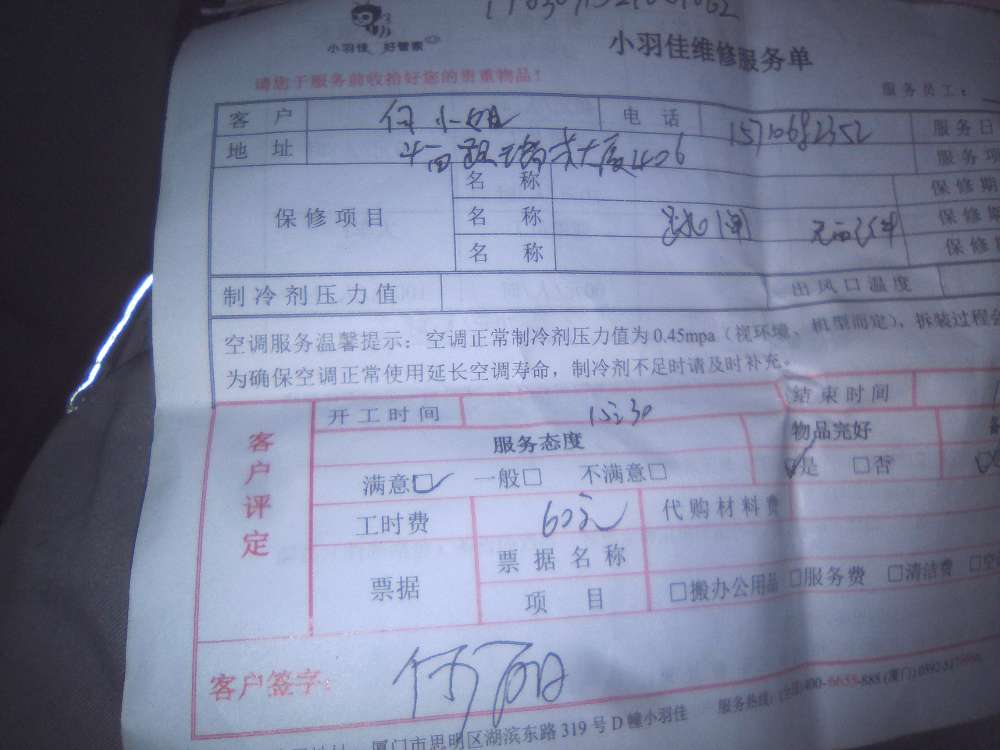 小羽佳 好管家
小羽佳维修服务单
请您于服务前收拾好您的贵重物品！
服务员工：
客户 何小姐 电话 15710682352 服务日
地址 大厦1406 服务项
保修项目 名称 保修期
名称 保修期
名称 保修
制冷剂压力值 出风口温度
空调服务温馨提示：空调正常制冷剂压力值为0.45mpa（视环境、机型而定），拆装过程会
为确保空调正常使用延长空调寿命，制冷剂不足时请及时补充。
客户评定
开工时间 结束时间
服务态度 物品完好
满意□ 一般□ 不满意□ 是 □否
工时费 60元 代购材料费
票据 票据名称
项目 □搬办公用品 □服务费 □清洁费
客户签字：
厦门市思明区湖滨东路319号D幢小羽佳 服务热线：(全国)400-6655-888 (厦门)0592-